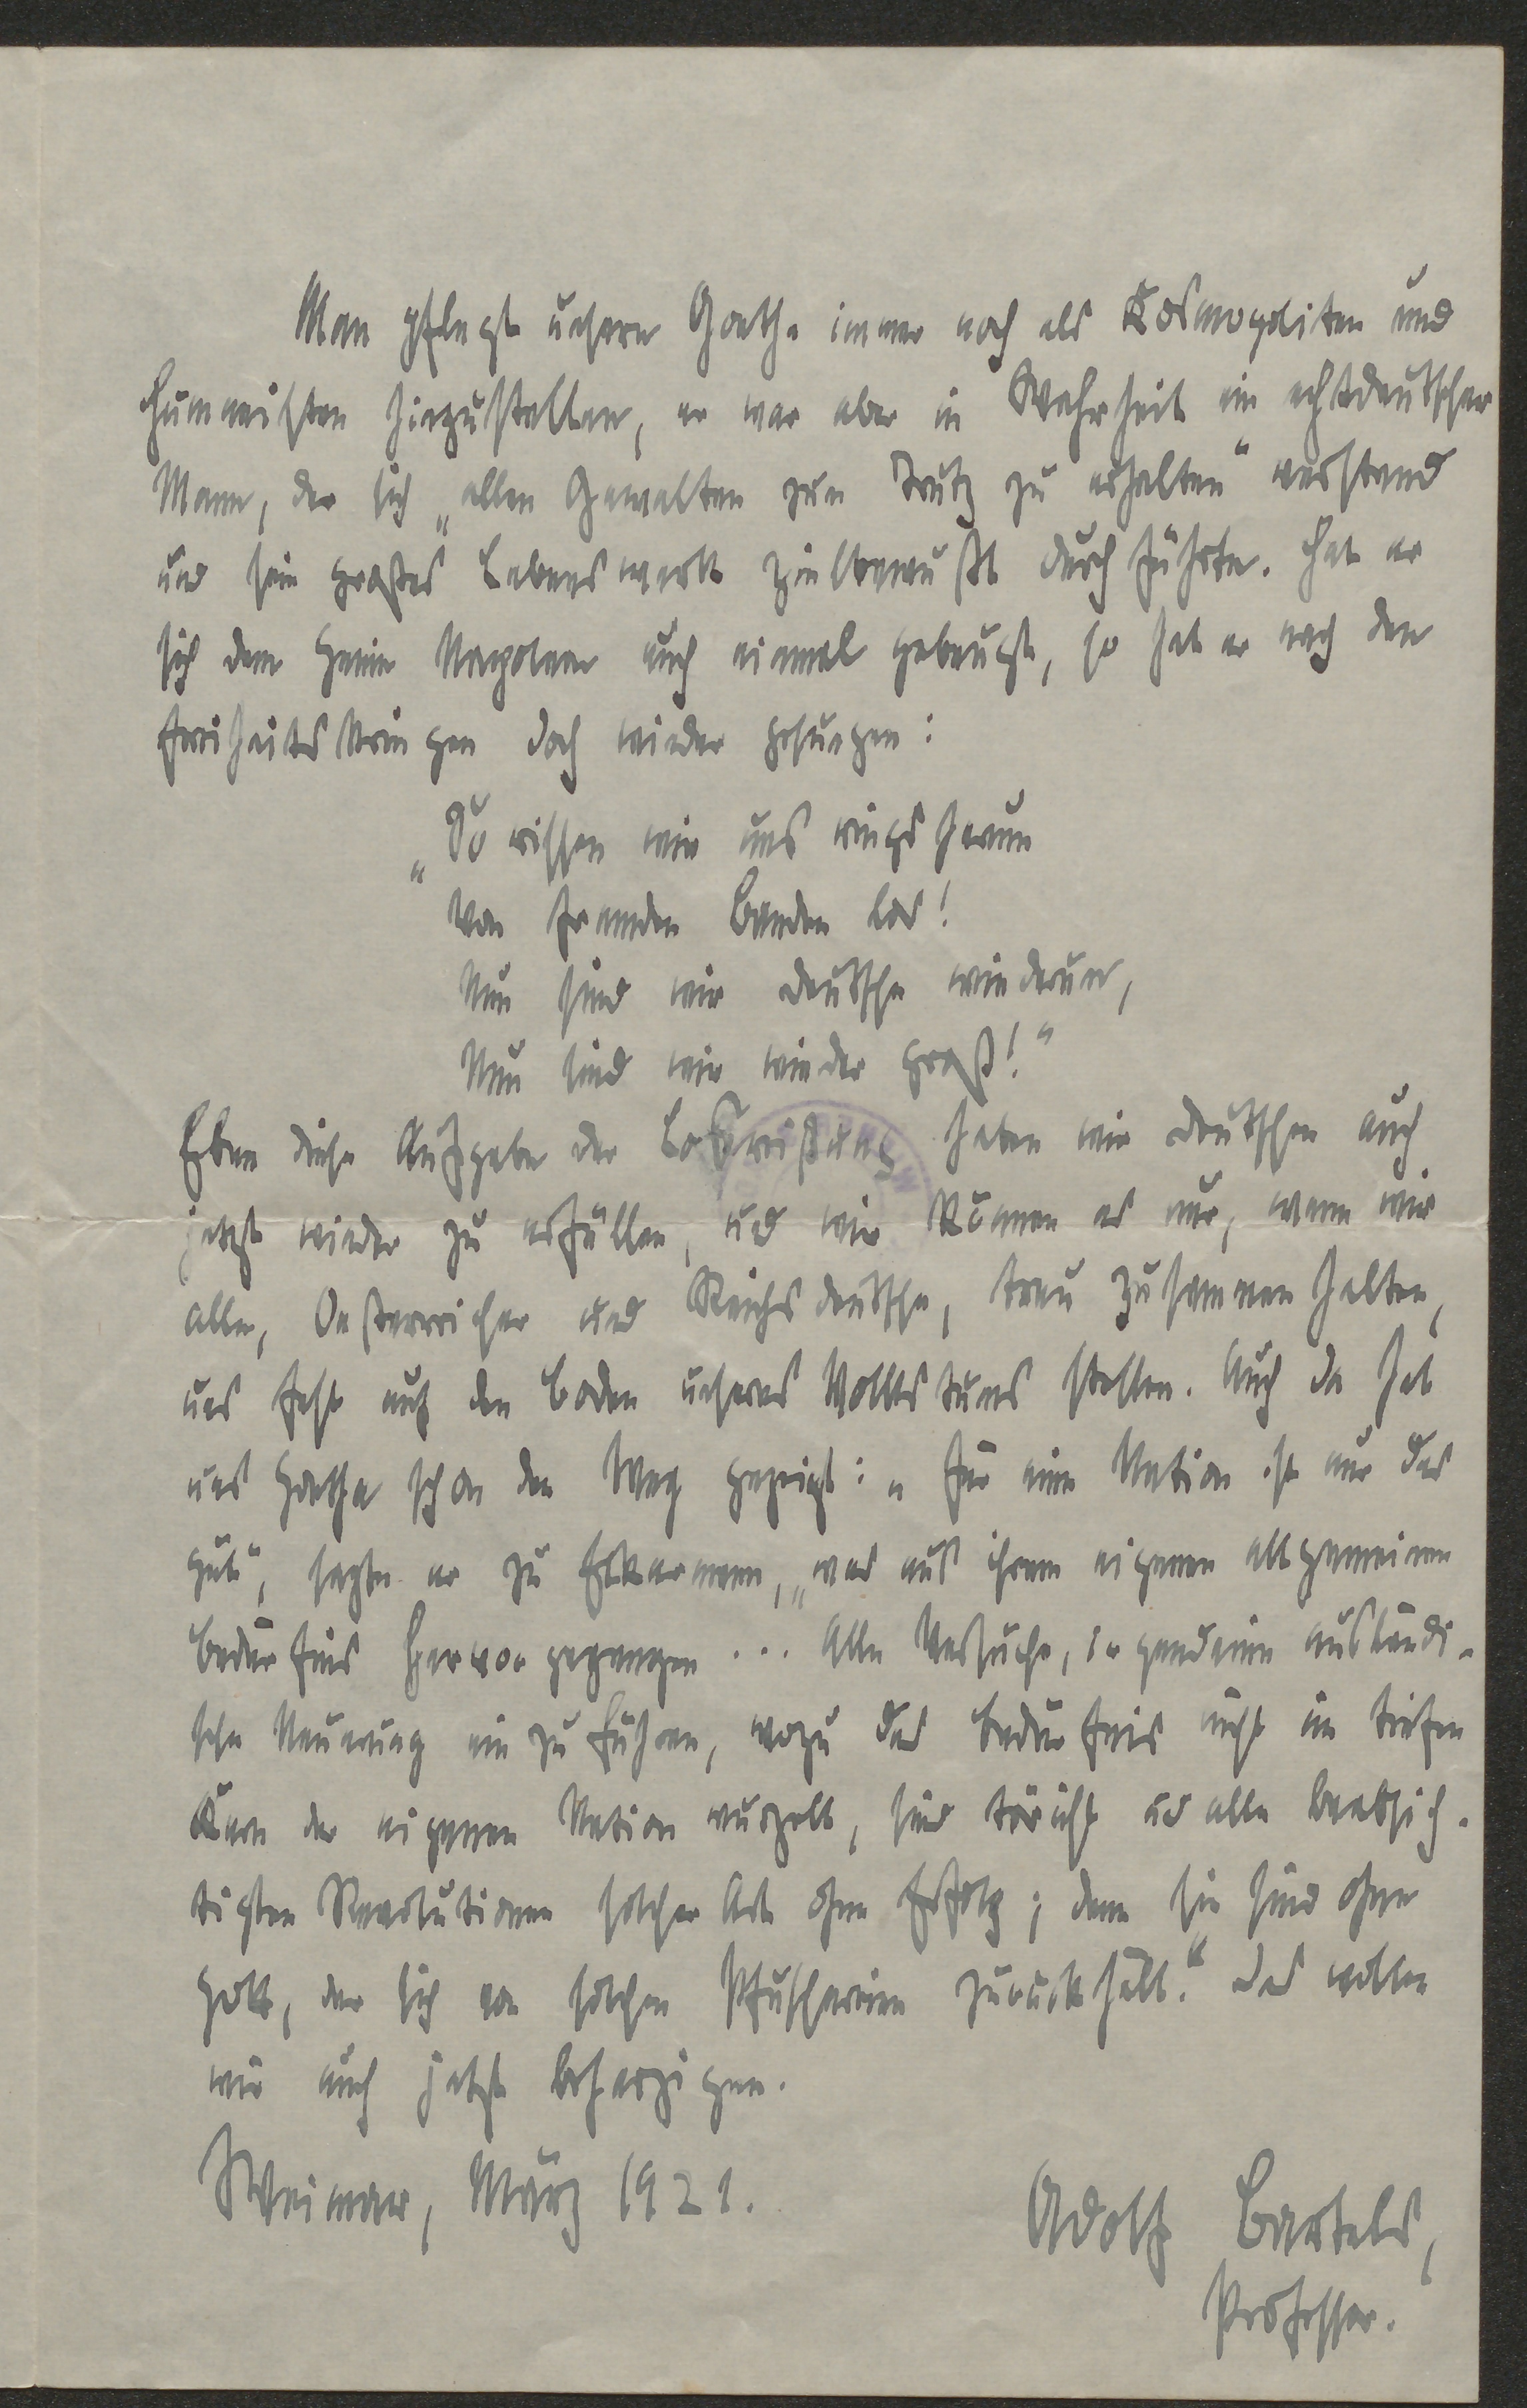 Man pflegt unseren Goethe immer noch als Kosmopoliten und
Humanisten hinzustellen, er war aber in Wahrheit ein echtdeutscher
Mann, der sich „allen Gewalten zum Trutz zu erhalten“ verstand
und sein großes Lebenswerk zielbewußt durchführte. Hat er
sich dem Genie Napoleon auch einmal gebeugt, so hat er nach den
Freiheitskriegen doch wieder gesungen:
„So rissen wir uns rings herum
Von fremden Banden los!
Nun sind wir Deutsche wiederum,
Nun sind wir wieder groß!“
Eben diese Aufgabe der Losreißung haben wir Deutschen auch
jetzt wieder zu erfüllen, und wir können es nur, wenn wir
alle, Oesterreicher und Reichsdeutsche, treu zusammenhalten,
uns fest auf den Boden unseres Volkstums stellen. Auch da hat
uns Goethe schon den Weg gezeigt: „Für eine Nation ist nur das
gut“, sagte er zu Eckermann, „was aus ihrem eigenen allgemeinen
Bedürfnis hervorgegangen ... Alle Versuche, irgendeine ausländi-
sche Neuerung einzuführen, wozu das Bedürfnis nicht im tiefen
Kern der eigenen Nation wurzelt, sind töricht und alle beabsich-
tigten Revolutionen solcher Art ohne Erfolg; denn sie sind ohne
Gott, der sich von solchen Pfuschereien zurückhält.“ Das wollen
wir auch jetzt beherzigen.
Weimar, März 1921.
Adolf Bartels,
Professor.